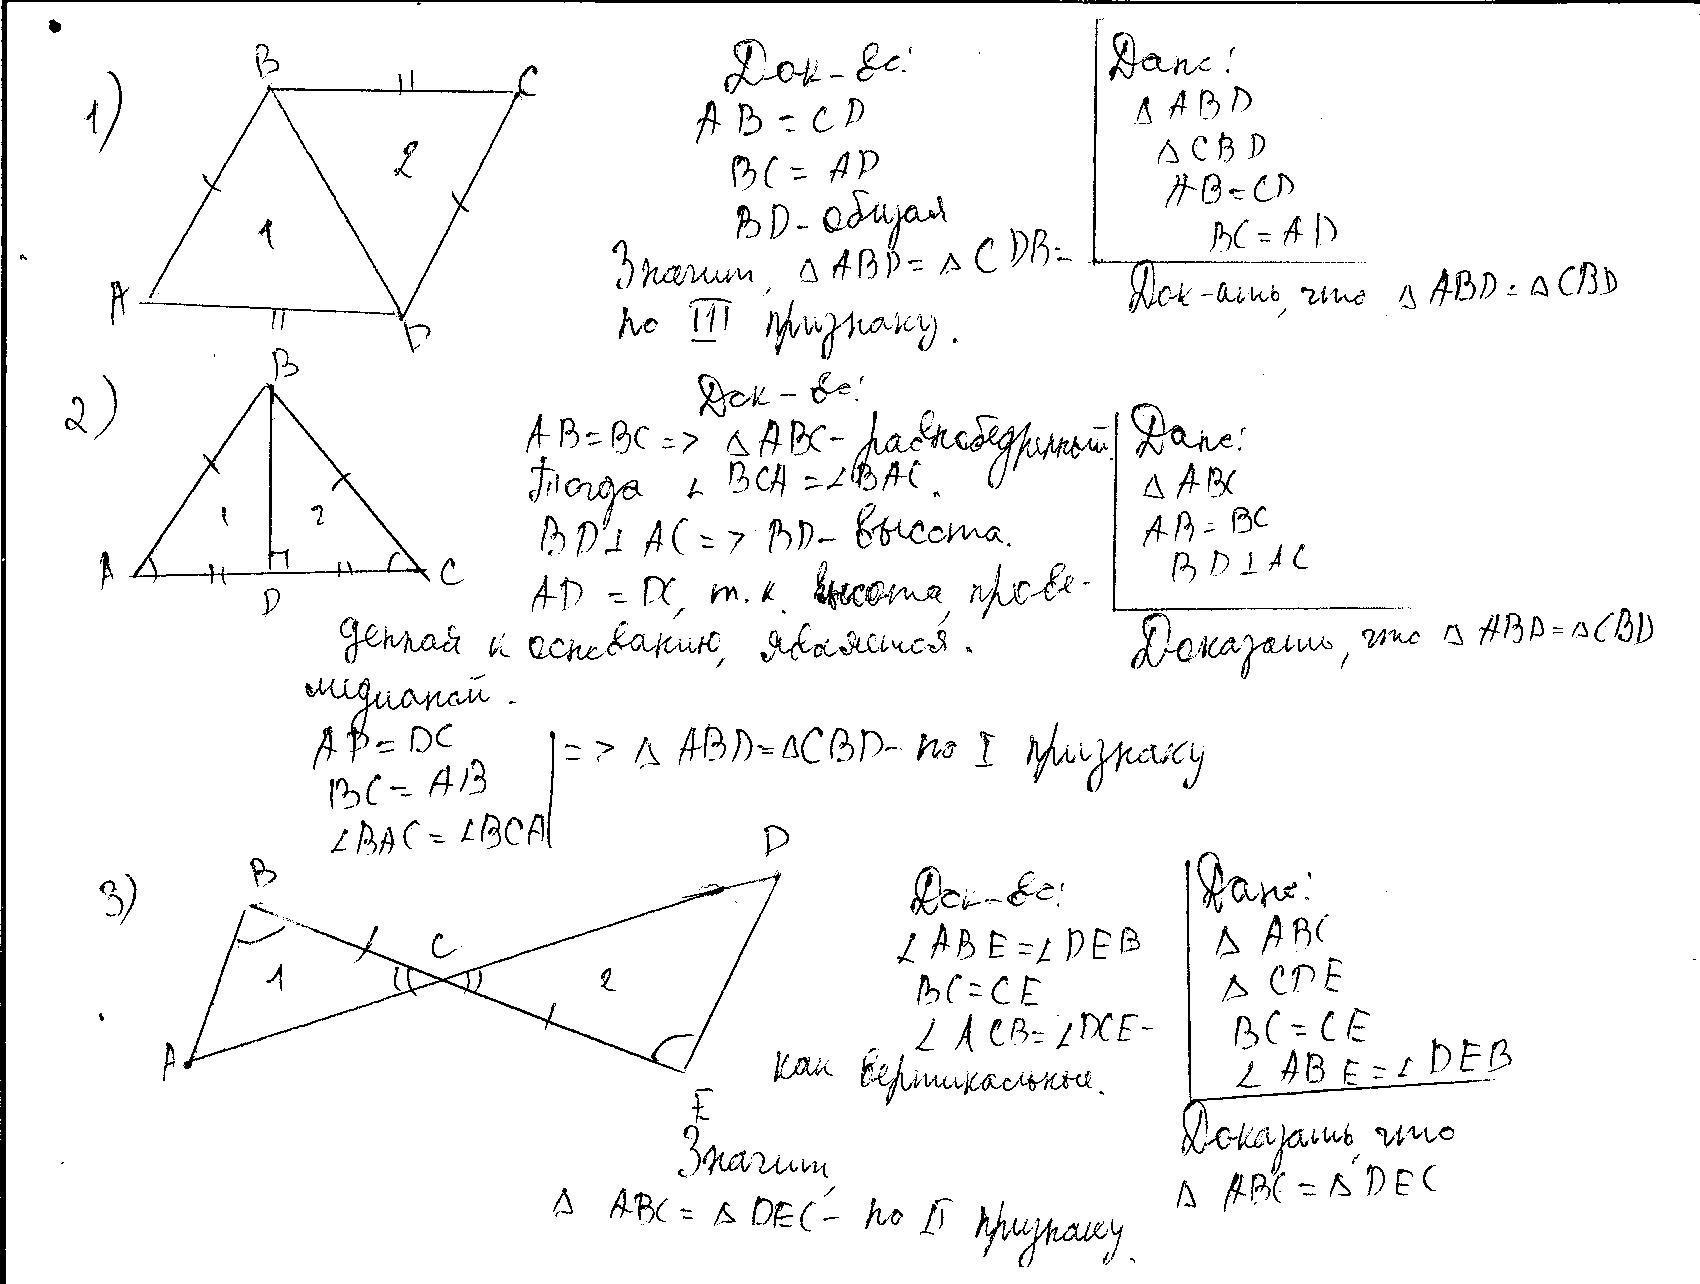 1)
B
C
2
1
A
D
Док-во:
AB = CD
BC = AD
BD - общая
Значит, △ ABD = △ CDB =
по III признаку.
Дано:
△ ABD
△ CBD
AB = CD
BC = AD
Док-ать, что △ ABD = △ CBD
2)
B
1 2
A
D
C
Док-во:
AB = BC => △ ABC - равнобедренный.
Тогда ∠ BCA = ∠BAC.
BD ⊥ AC => BD - высота.
AD = DC, т.к. высота, прове-
денная к основанию, является.
медианой.
AD = DC
BC = AB
∠BAC = ∠BCA
=> △ ABD = △CBD - по I признаку
Дано:
△ ABC
AB = BC
BD ⊥ AC
Доказать, что △ ABD = △CBD
3)
B
D
C
1
2
A
E
Док-во:
∠ ABE = ∠ DEB
BC = CE
∠ ACB = ∠DCE -
как вертикальные.
Значит,
△ ABC = △ DEC - по II признаку.
Дано:
△ ABC
△ CDE
BC = CE
∠ ABE = ∠ DEB
Доказать, что
△ ABC = △ DEC